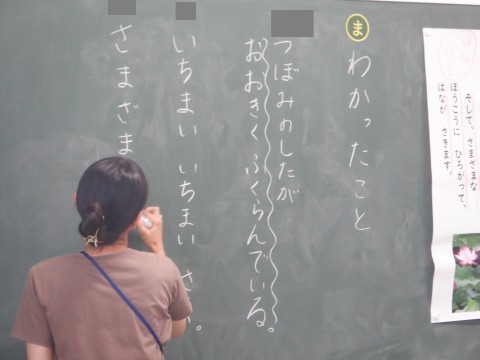 ま わかったこと
つぼみのしたが
おおきくふくらんでいる。
いちまい いちまい
さまざま
そして、さまざまな
ほうこうに ひろがって、
はなが さきます。